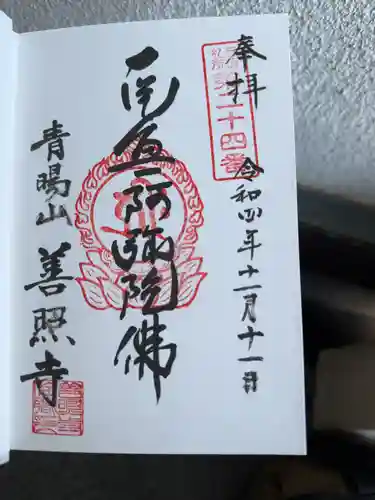 奉拝
第二十四番
令和四年十一月十一日
南無阿弥陀佛
青暘山
善照寺